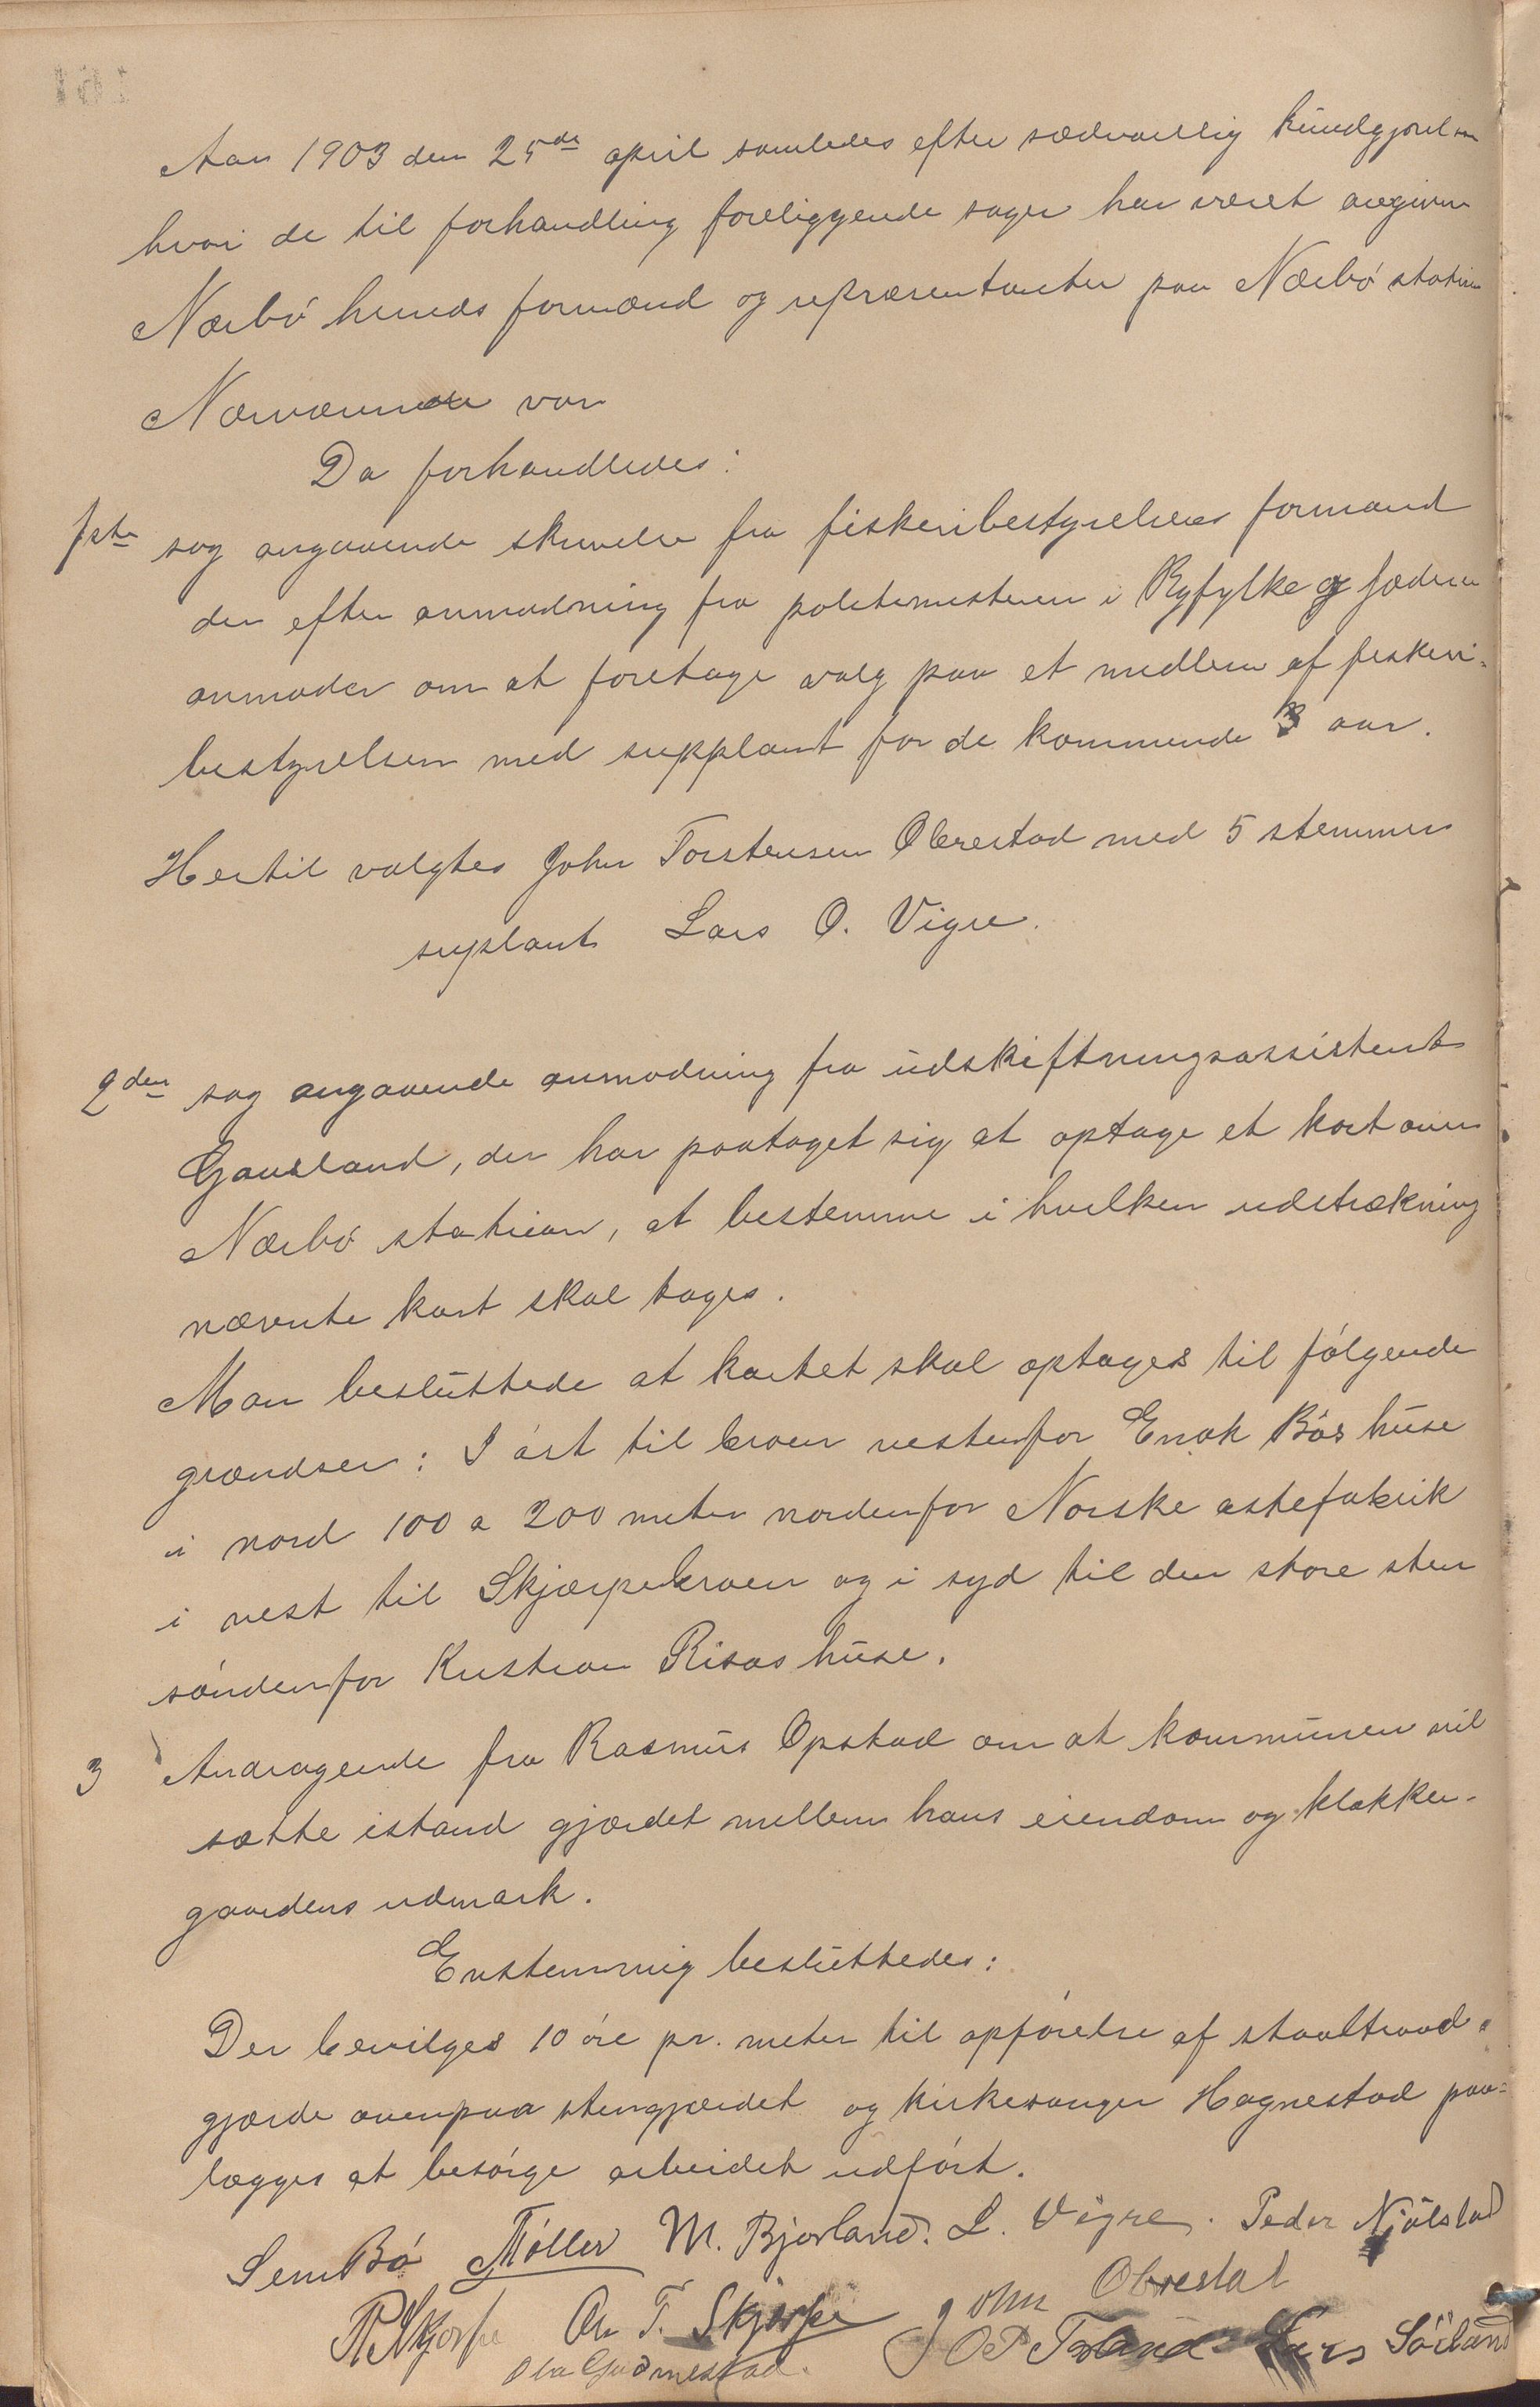 Aar 1903 den 25de april samledes efter sædvanlig kundgjørelse
hvori de til forhandling foreliggende sager har været angivne
Nærbø herreds formænd og repræsentanter paa Nærbø station
Nærværende var
Da forhandledes:
1ste sag angaaende skrivelse fra fiskeribestyrelsens formand
der efter anmodning fra politimesteren i Ryfylke og Jæderen
anmoder om at foretage valg paa et medlem af fiskeri-
bestyrelsen med supplant for de kommende 3 aar.
Hertil valgtes John Torstensen Obrestad med 5 stemmer
suplant Lars O. Vigre.
2den sag angaaende anmodning fra udskiftningsassistent
Gausland, der har paataget sig at optage et kart over
Nærbø station, at bestemme i hvilken udstrækning
nævnte kart skal tages.
Man besluttede at kartet skal optages til følgende
grændser: I øst til broen vestenfor Enok Bøs huse
i nord 100 a 200 meter nordenfor Norske ostefabrik
i vest til Skjærpebroen og i syd til den store sten
søndenfor Kristian Risas huse.
3 Andragende fra Rasmus Opstad om at kommunen vil
sætte istand gjærdet mellem hans eiendom og klokker-
gaardens udmark.
Enstemmig besluttedes:
Der bevilges 10 øre pr. meter til opførelse af staaltraad-
gjærde ovenpaa stengjærdet og kirkesanger Hognestad paa-
lægges at besørge arbeidet udført.
Sem Bø Møller M. Bjorland. L. Vigre. Peder Njølstad
R Skjorpe T. Skjorpe John Obrestad
Ola Gudmestad. Lars Söiland